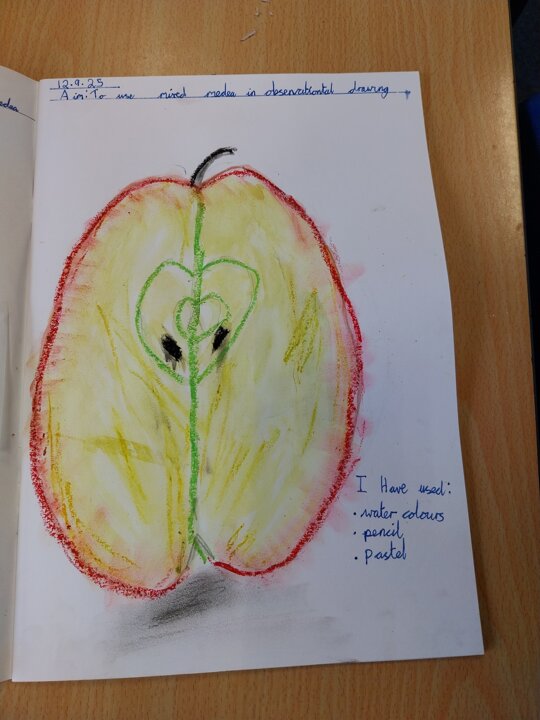 edea
12.9.25
Aim: To use mixed medea in observationtal drawing
I Have used:
• water colours
• pencil
• pastel